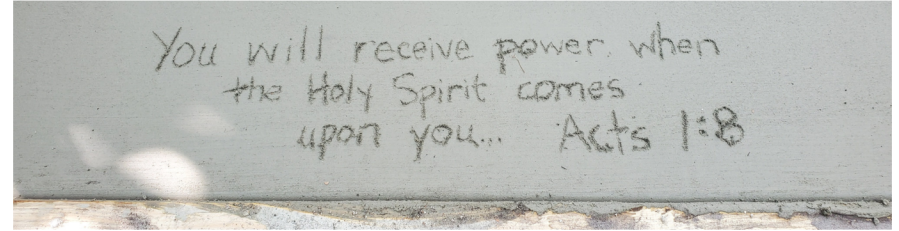 You will receive power when
the Holy Spirit comes
upon you... Acts 1:8